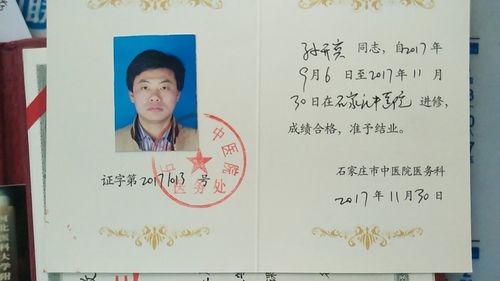 孙开宾 同志，自2017年
9月6日至2017年11月
30日在石家庄中医院进修，
成绩合格，准予结业。
石家庄市中医院医务科
2017年11月30日
证字第20171013号
中医院
医务处
河北医科大学附